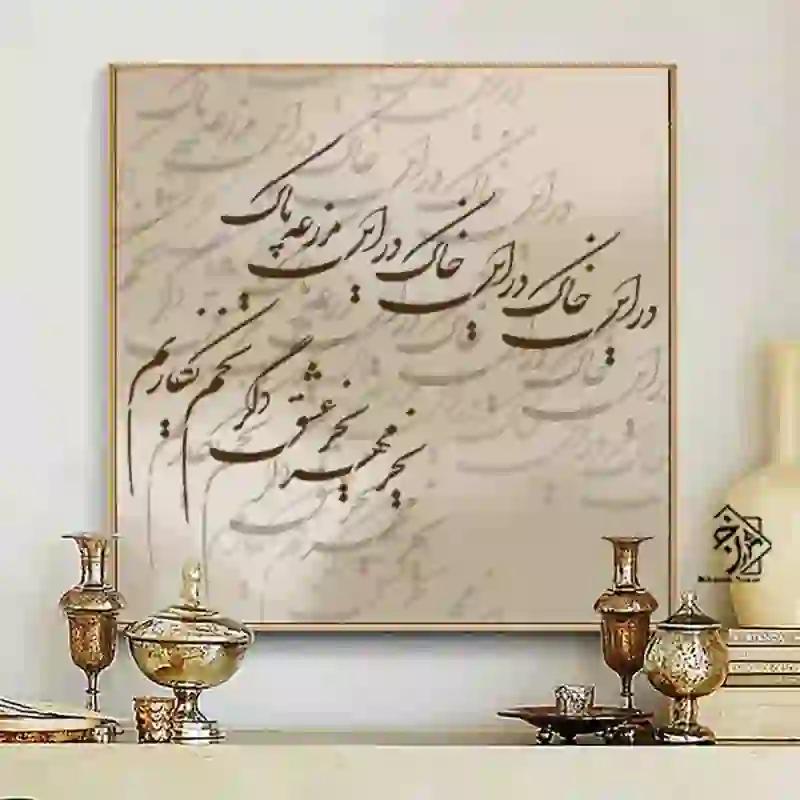 در این خاک در این خاک در این مزرعه پاک
بجز مهر بجز عشق دگر تخم نکاریم